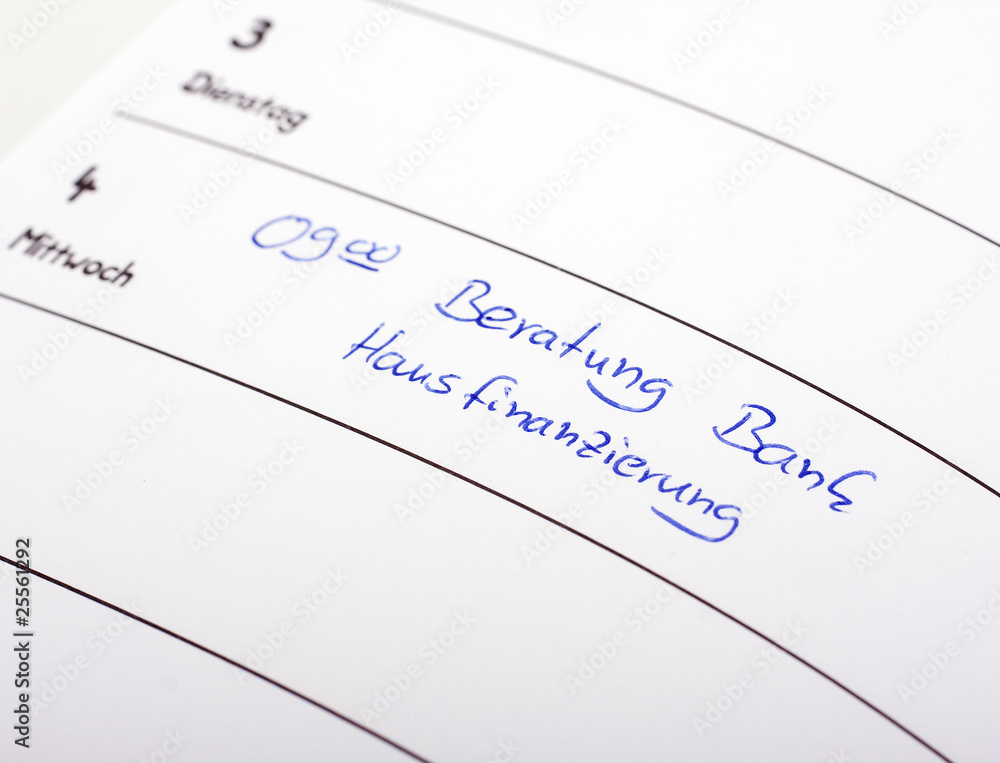 3
Dienstag
4
Mittwoch
09 00
Beratung Bank
Hausfinanzierung
Adobe Stock | #25561292